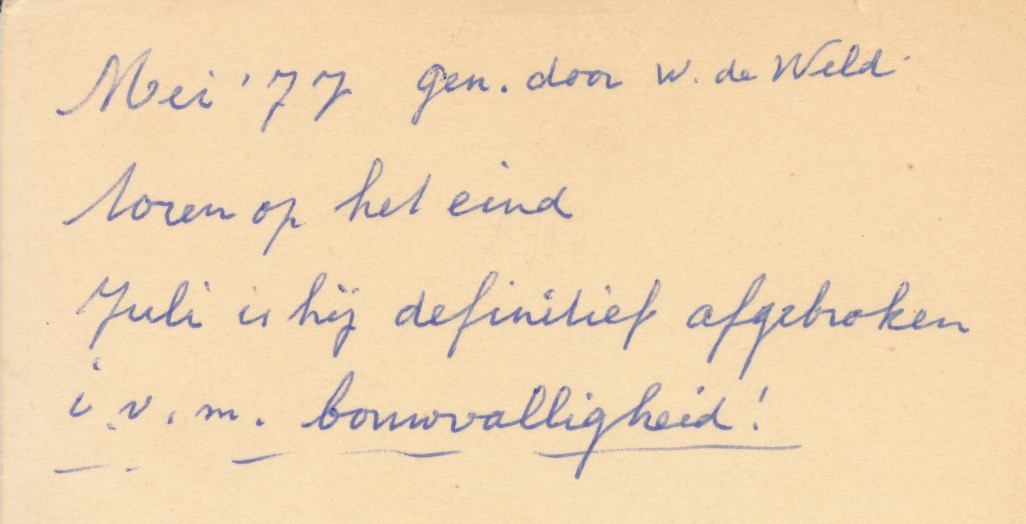 Mei '77 gen. door W. de Weld.
toren op het eind
Juli is hij definitief afgebroken
i.v.m. bouwvalligheid!